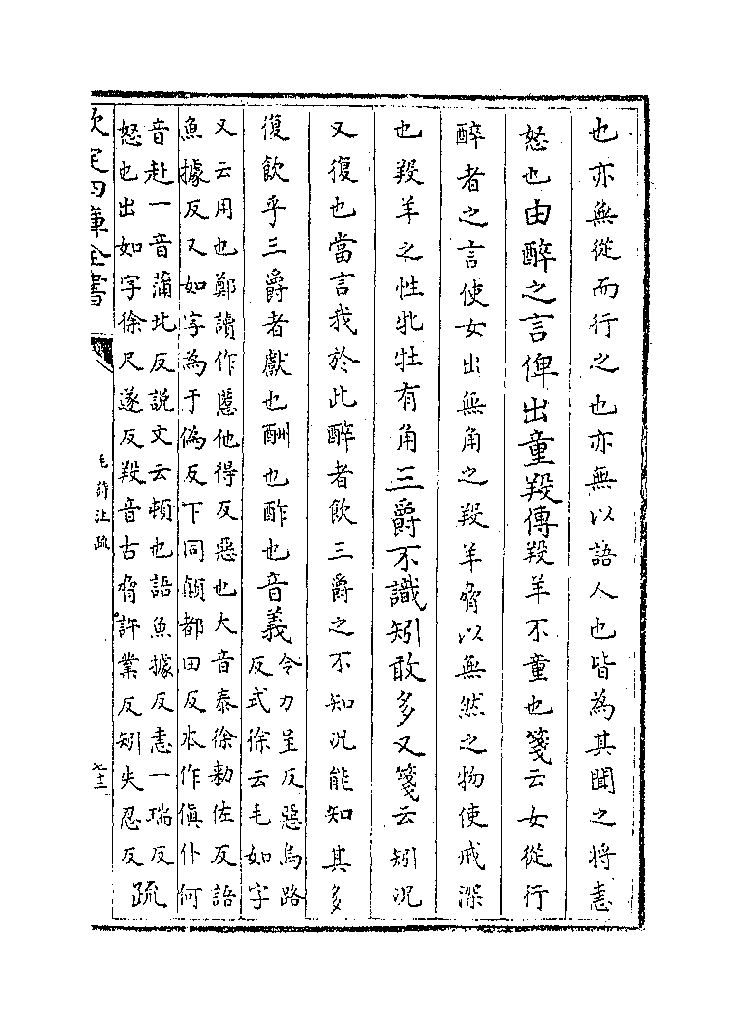 也亦無從而行之也亦無以語人也皆為其聞之將恚
怒也由醉之言俾出童羖傳羖羊不童也箋云女從行
醉者之言使女出無角之羖羊脅以無然之物使戒深
也羖羊之性牝牡有角三爵不識矧敢多又箋云矧况
又復也當言我於此醉者飲三爵之不知况能知其多
復飲乎三爵者獻也酬也酢也音義
令力呈反惡烏路
反式徐云毛如字
又云用也鄭讀作慝他得反惡也大音泰徐勑佐反語
魚據反又如字為于偽反下同顛都田反本作傎仆何
音赴一音蒲北反說文云頓也語魚據反恚一瑞反
怒也出如字徐尺遂反羖音古脅許業反矧失忍反
疏
欽定四庫全書
毛詩注疏